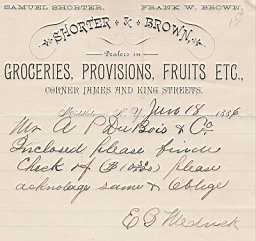 SAMUEL SHORTER. FRANK W. BROWN.
SHORTER & BROWN,
Dealers in
GROCERIES, PROVISIONS, FRUITS ETC.,
CORNER JAMES AND KING STREETS.
Middletown, N. Y. June 18 1886
Mr A P DuBois & Co
Inclosed please find
Check of ($ 10.00) please
acknolage same & oblige
E B